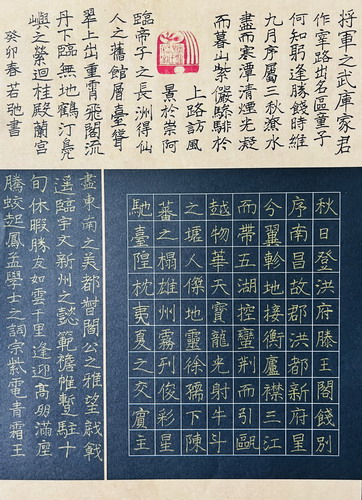 秋日登洪府滕王閣餞別
序南昌故郡洪都新府星
今翼軫地接衡廬襟三江
而帶五湖控蠻荊而引甌
越物華天寶龍光射牛斗
之墟人傑地靈徐孺下陳
蕃之榻雄州霧列俊彩星
馳臺隍枕夷夏之交賓主
盡東南之美都督閻公之雅望棨戟
遙臨宇文新州之懿範襜帷暫駐十
旬休暇勝友如雲千里逢迎高朋滿座
騰蛟起鳳孟學士之詞宗紫電青霜王
將軍之武庫家君
作宰路出名區童子
何知躬逢勝餞時維
九月序屬三秋潦水
盡而寒潭清煙光凝
而暮山紫儼驂騑於
上路訪風
景於崇阿
臨帝子之長洲得仙
人之舊館層臺聳
翠上出重霄飛閣流
丹下臨無地鶴汀鳧
嶼之縈迴桂殿蘭宮
癸卯春若弛書